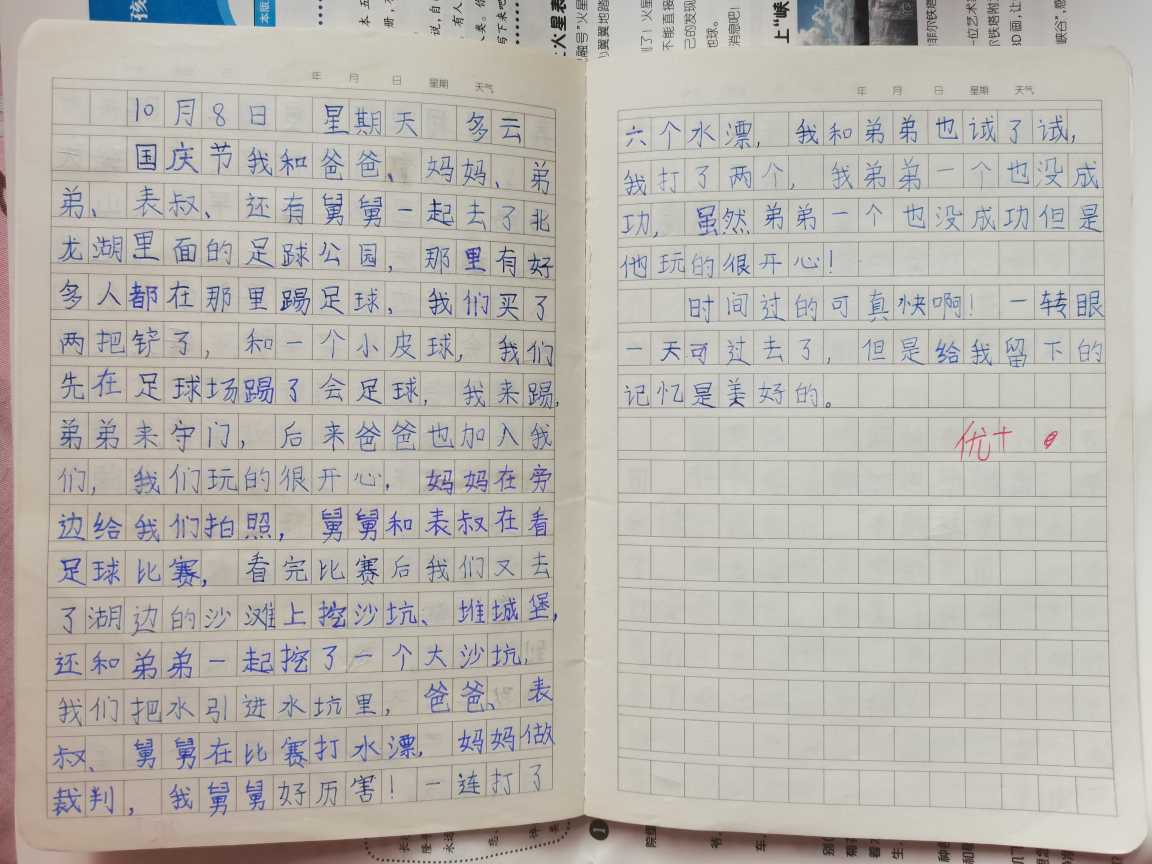 年 月 日 星期 天气
10月8日 星期天 多云
国庆节我和爸爸、妈妈、弟
弟、表叔、还有舅舅一起去了北
龙湖里面的足球公园，那里有好
多人都在那里踢足球，我们买了
两把铲子，和一个小皮球，我们
先在足球场踢了会足球，我来踢，
弟弟来守门，后来爸爸也加入我
们，我们玩的很开心，妈妈在旁
边给我们拍照，舅舅和表叔在看
足球比赛，看完比赛后我们又去
了湖边的沙滩上挖沙坑、堆城堡，
还和弟弟一起挖了一个大沙坑，
我们把水引进水坑里，爸爸、表
叔、舅舅在比赛打水漂，妈妈做
裁判，我舅舅好厉害！一连打了
年 月 日 星期 天气
六个水漂，我和弟弟也试了试，
我打了两个，我弟弟一个也没成
功，虽然弟弟一个也没成功但是
他玩的很开心！
时间过的可真快啊！一转眼
一天可过去了，但是给我留下的
记忆是美好的。
优+